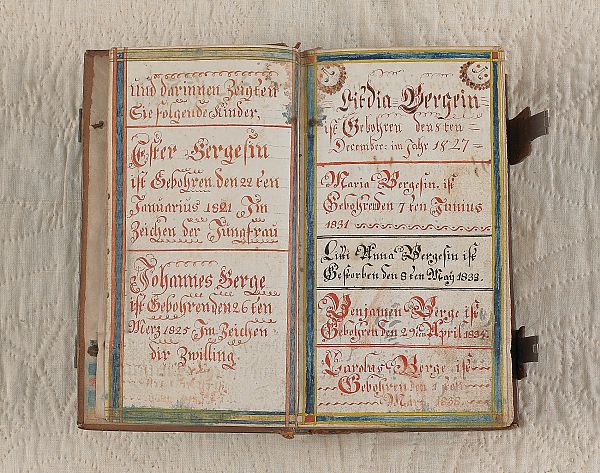 und darinnen Zeigten
Sie folgende Kinder,
Ester Bergesin
ist Gebohren den 22 ten
Januarius 1821 Im
Zeichen der Jungfrau
Johannes Berge
ist Gebohren den 26 ten
Merz 1825 Im Zeichen
dir Zwilling.
Lidia Bergein
ist Gebohren den 8 ten
December: im Jahr 1827
Maria Bergesin ist
Gebohren den 7 ten Junius
1831
Livi Anna Bergesin ist
Gestorben den 8 ten May 1833.
Benjamen Berge ist
Gebohren den 29 ten April 1834.
Carolus Berge ist
Gebohren den ten
1838.